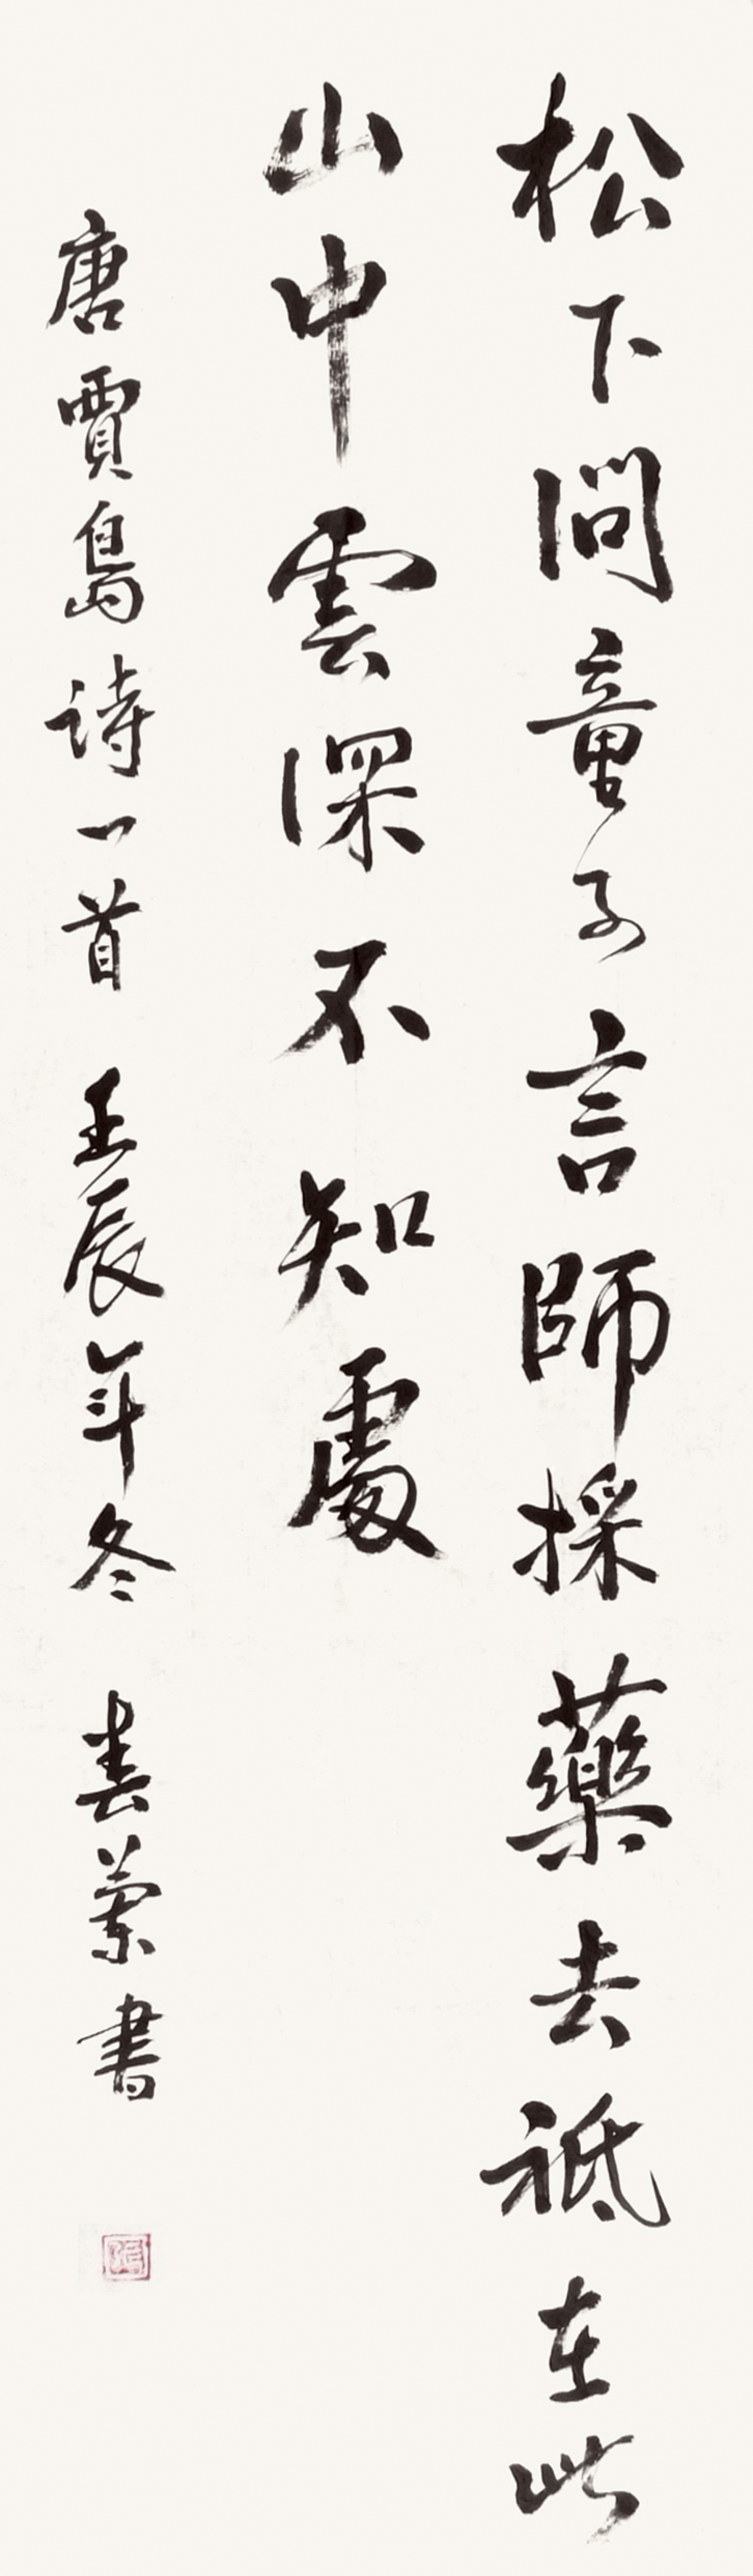 松下問童子言師採藥去祗在此
山中雲深不知處
唐賈島詩一首 壬辰年冬 春蘭書